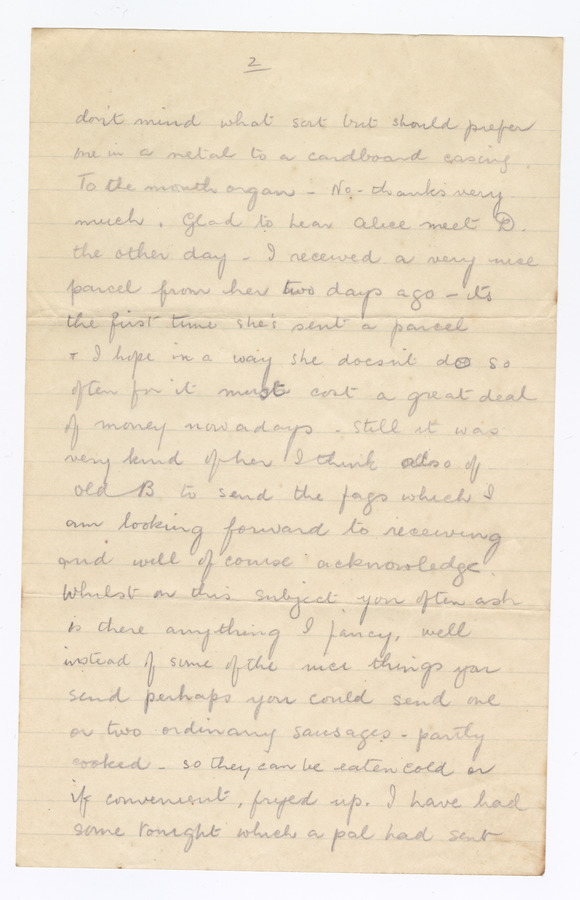 2
don't mind what sort but should prefer
one in a metal to a cardboard casing.
To the mouth organ - No - thanks very
much. Glad to hear Alice meet D.
the other day - I received a very nice
parcel from her two days ago - its
the first time she's sent a parcel
+ I hope in a way she doesn't do so
often for it must cost a great deal
of money nowadays - Still it was
very kind of her I think also of
old B to send the fags which I
am looking forward to receiving
and will of course acknowledge.
Whilst on this subject you often ask
is there anything I fancy, well
instead of some of the nice things you
send perhaps you could send one
or two ordinary sausages - partly
cooked - so they can be eaten cold or
if convenient, fryed up. I have had
some tonight which a pal had sent